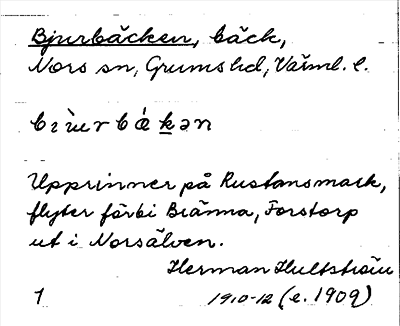 Bjurbäcken, bäck,
Nors sn, Grums hd, Värml. l.
Upprinner på Rustansmark,
flyter förbi Bränna, Forstorp
ut i Norsälven.
Herman Hultström
1 1910-12 (e. 1909)